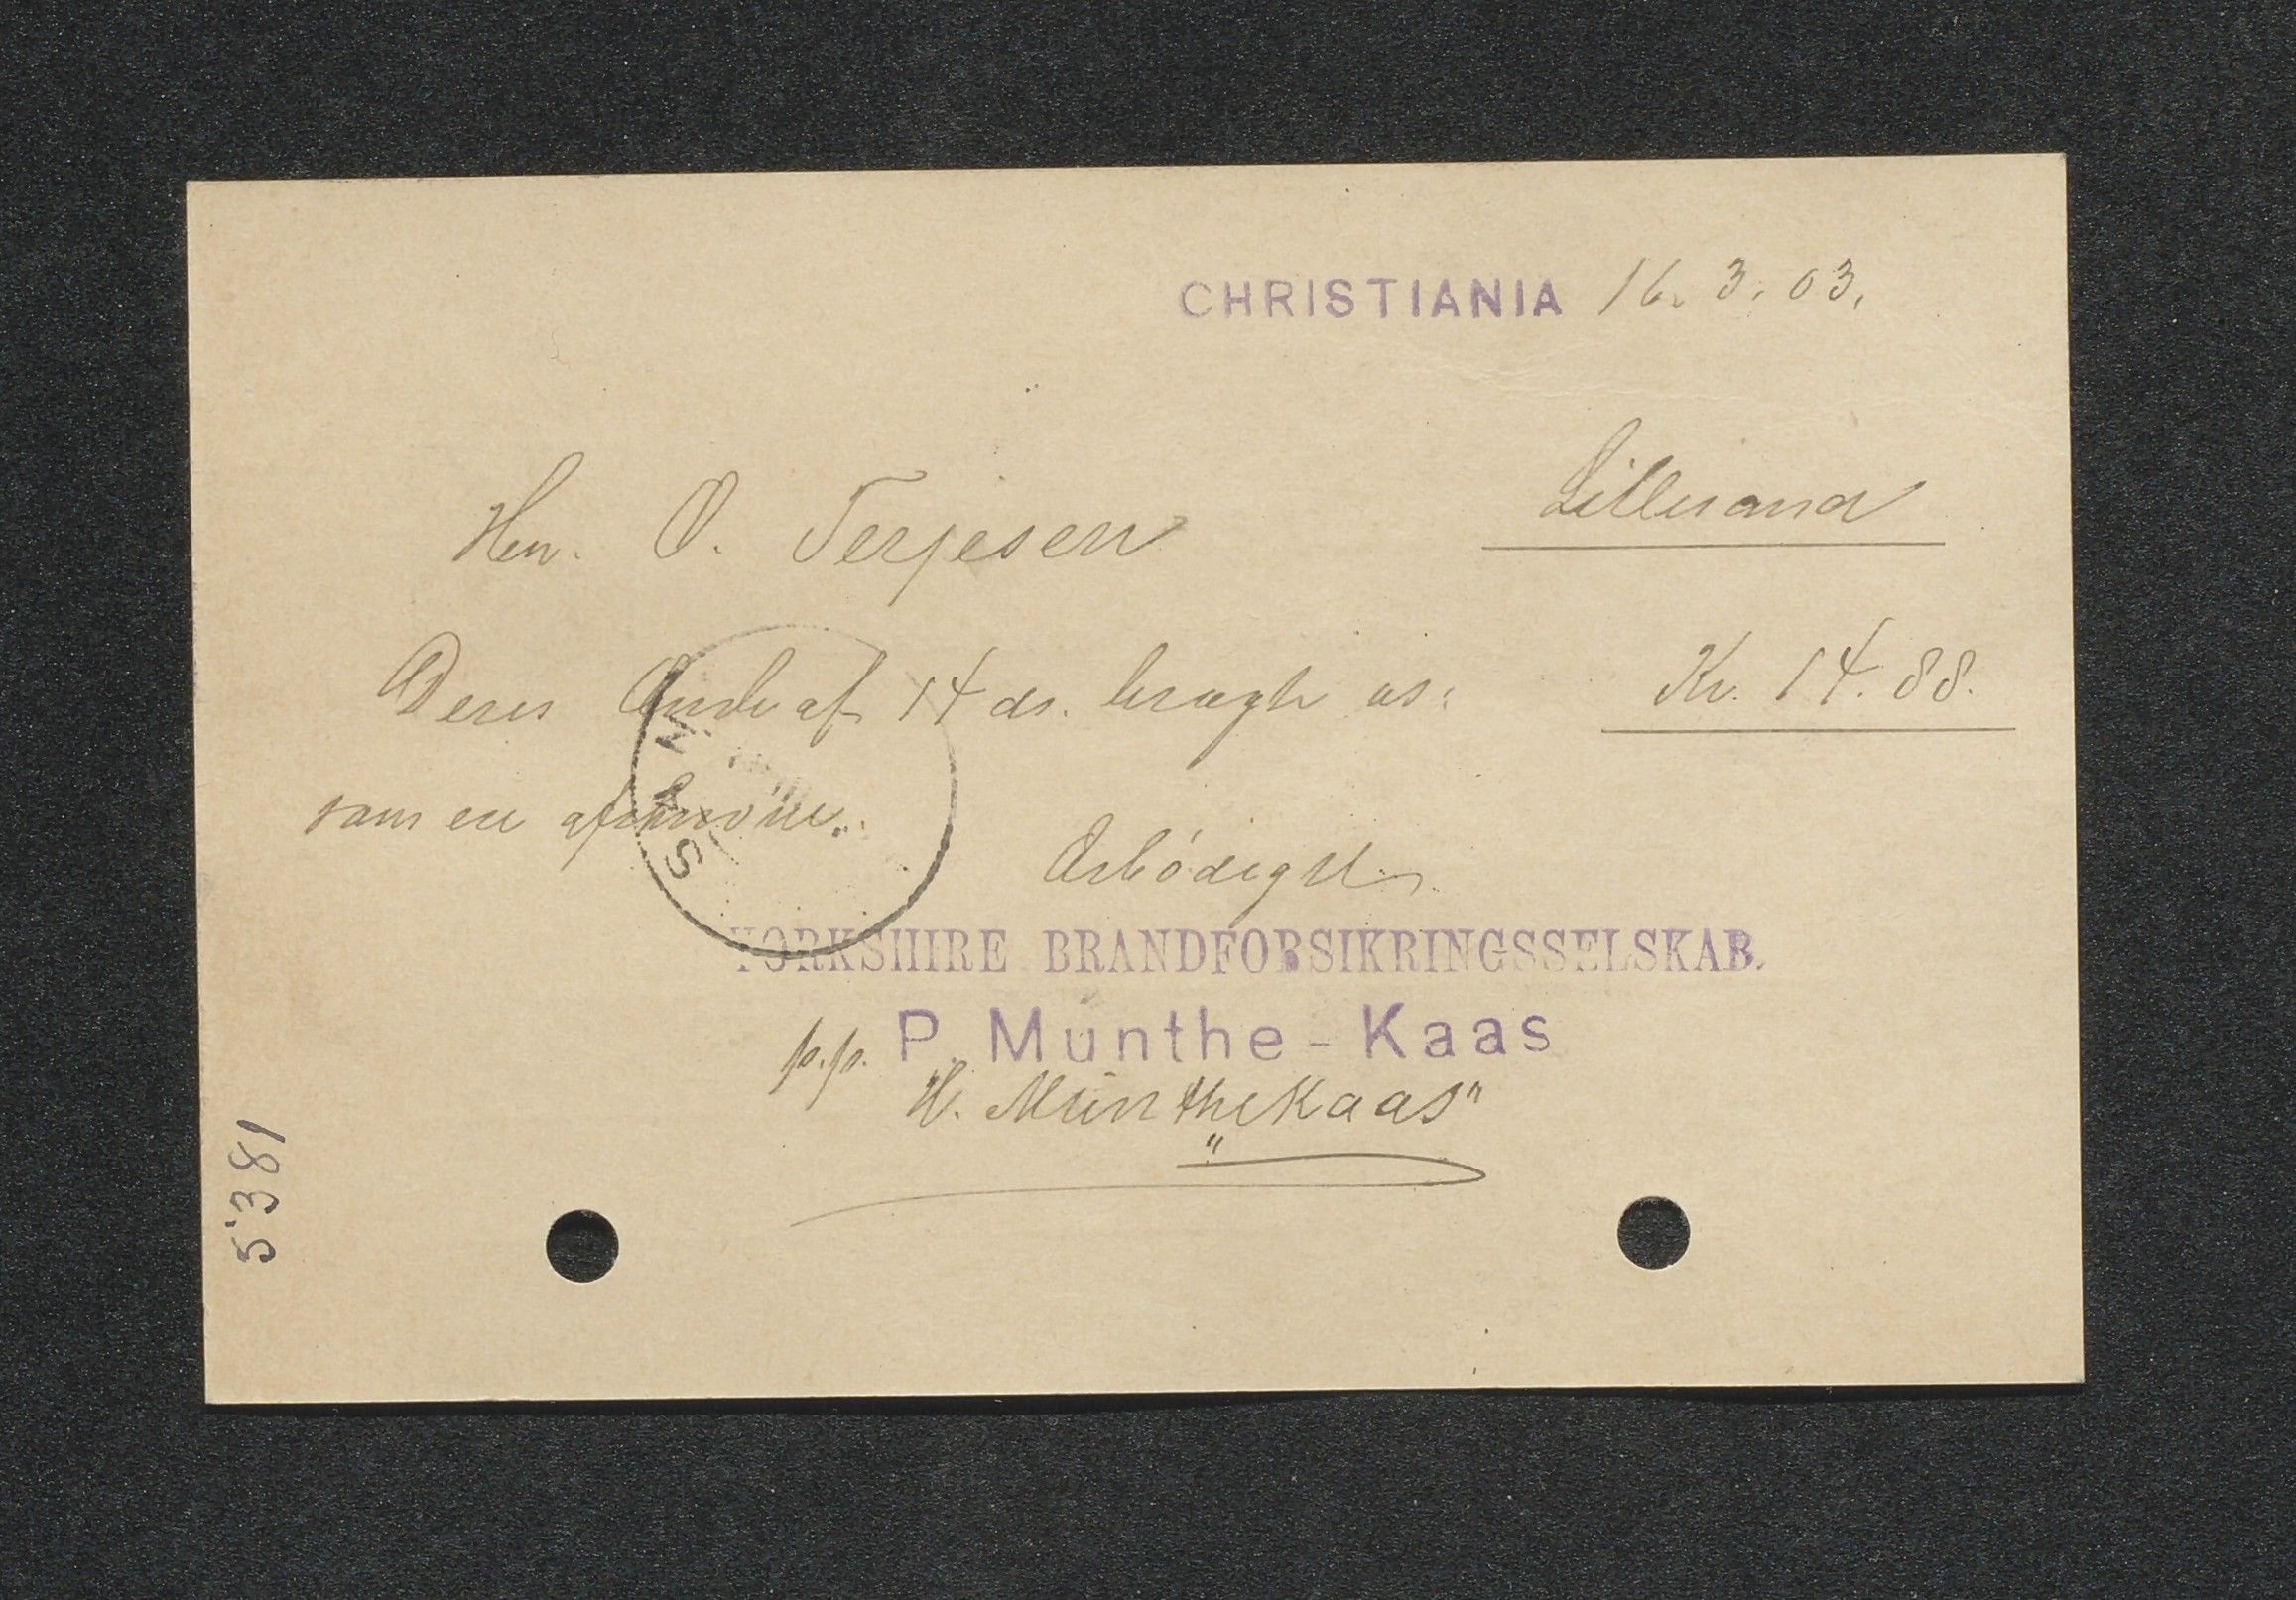 CHRISTIANIA 16. 3. 03.
Lillesand
Herr. O. Terjesen
Deres Ærede af 14 ds. bragte os: Kr. 14.88.
som er
Ærbödigst
YORKSHIRE BRANDFORSIKRINGSSELSKAB.
p.p. P. Munthe-Kaas
H. Munthe Kaas"
5381